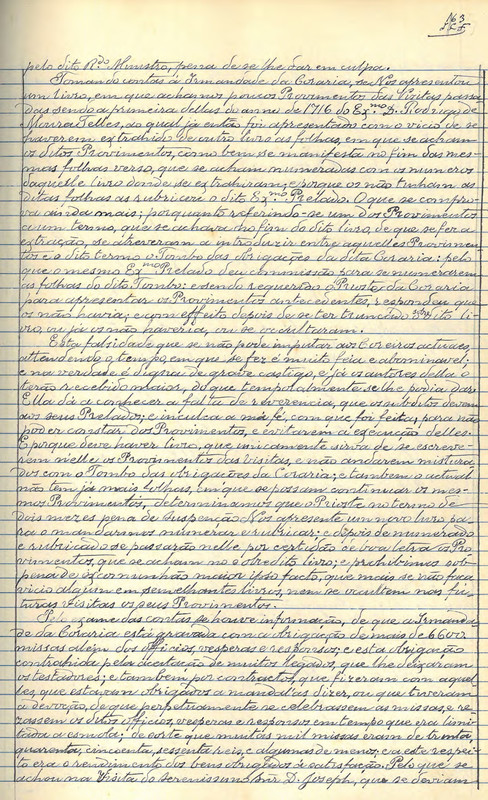 163
pelo dito R.do Ministro, pena de se lhe dar em culpa.
Tomando contas á Irmandade da Coraria, se Nos apresentou
um livro, em que achamos poucos Provimentos das Visitas passa-
das sendo a primeira dellas do anno de 1716 do Ex.mo D. Rodrigo de
Moura Telles, ao qual já então foi apresentado com o vicio de se
haverem extrahido de outro livro as folhas, em que se acham
os ditos Provimentos, como bem se manifesta no fim das mes-
mas folhas verso, que se acham numeradas com os numeros
daquelle livro donde se extrahiram; e porque os não tinham as
ditas folhas as rubricou o dito Ex.mo Prelado. O que se compro-
va ainda mais; porquanto referindo-se um dos Provimentos
a um termo, que se achava no fim do dito livro, de que se fez a
extração, se atreveram a introduzir entre aquelles Provimen-
tos e o dito termo o Tombo das obrigações da dita Coraria: pelo
que o mesmo Ex.mo Prelado deu commissão para se numerarem
as folhas do dito Tombo: e sendo requerido o Prioste da Coraria
para apresentar os Provimentos antecedentes, respondeu que
os não havia; e com effeito depois de se ter truncado o dito li-
vro, ou já os não haveria, ou se occultaram.
Esta falsidade que se não pode imputar aos Coreiros actuaes,
attendendo o tempo, em que se fez é muito feia e abominavel:
e na verdade é digna de grave castigo, e já os autores della o
terão recebido maior, do que temporalmente se lhe podia dar.
Ella dá a conhecer a falta de reverencia, que os subditos devem
aos seus Prelados; e inculca a má fé, com que foi feita, para não
poder constar dos Provimentos, e evitarem a execução delles.
E porque deve haver livro, que unicamente sirva de se escreve-
rem nelle os Provimentos das Visitas, e não andarem mistura-
dos com o Tombo das obrigações da Coraria; e tambem o actual
não tem já mais folhas, em que se possam continuar os mes-
mos Provimentos, determinamos que o Prioste no termo de
dois mezes pena de suspenção Nos apresente um novo livro pa-
ra o mandarmos numerar e rubricar: e depois de numerado
e rubricado se passarão nelle por certidão de boa letra os Pro-
vimentos, que se acham no sobredito livro; e prohibimos sob
pena de excomunhão maior ipso facto, que mais se não faça
vicio algum em semelhantes livros, nem se occultem nas fu-
turas Visitas os seus Provimentos.
Pelo exame das contas, se houve informação, de que a Irmanda-
de da Coraria está gravada com a obrigação de mais de 6600
missas além dos officios, vesperas e responsos; e esta obrigação
contrahida pela aceitação de muitos legados, que lhe deixaram
os testadores; e tambem por contractos, que fizeram com aquel-
les, que estavam obrigados a mandal-as dizer, ou que tiveram
a devoção, de que perpetuamente se celebrassem as missas, e re-
zassem os ditos officios, vesperas e responsos em tempo que era limi-
tada a esmola; de sorte que muitas mil missas eram de trinta,
quarenta, cincoenta, sessenta reis, e algumas de menos; e a este respei-
to era o rendimento dos bens obrigados á satisfação. Pelo que se
achou na Visita do Serenissimo Snr. D. Joseph, que se deviam